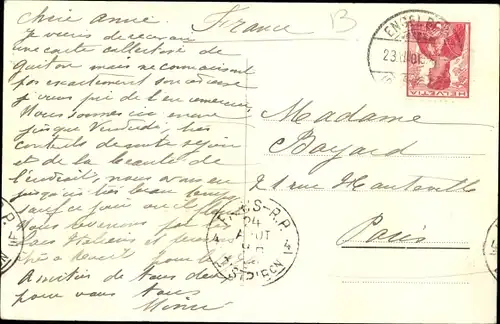 Chère amie.
France
Je viens de recevoir
une carte collective de
mais ne connaissant
pas exactement son adresse
je vous prie de l'en remercier
Nous sommes ici
jusque Vendredi, très
contents de notre séjour
et de la beauté de
l'endroit, nous avons eu
jusqu'ici très beau temps
sauf ce jour où il pleut
Nous revenons par les
Lacs Italiens et
Amitiés de tous deux
pour vous tous
Mimi
B
ENGELBERG
23.VIII.01
HELVETIA
Madame
Bayard
21 rue Hauteville
Paris
PARIS-R.P.
24
AOUT
4 4
R.P.
4